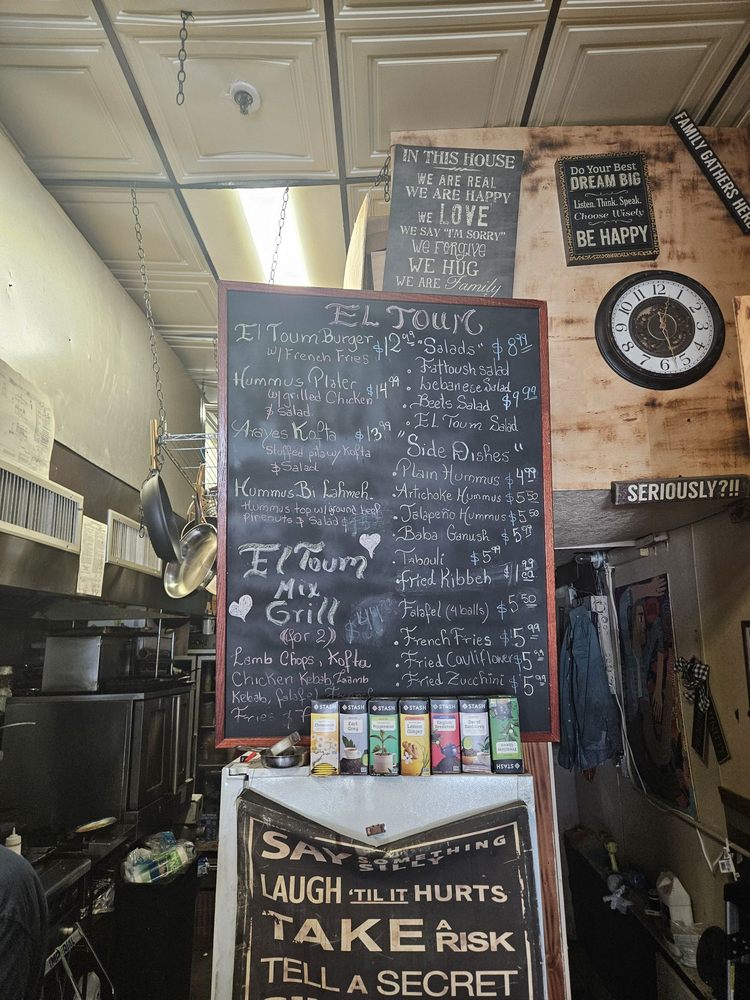 IN THIS HOUSE
WE ARE REAL
WE ARE HAPPY
WE LOVE
WE SAY "I'M SORRY"
WE FORGIVE
WE HUG
WE ARE Family
Do Your Best
DREAM BIG
Listen. Think. Speak.
Choose Wisely
BE HAPPY
FAMILY GATHERS HERE
12 1 2 3 4 5 6 7 8 9 10 11
SERIOUSLY?!!
EL TOUM
El Toum Burger $12.49
w/ French Fries
Hummus Plater $14.99
w/ grilled Chicken
& Salad
Arayes Kofta $13.99
Stuffed pita w/ Kofta
& Salad
Hummus Bi Lahmeh
Hummus top w/ ground beef
pinenuts & Salad
El Toum
Mix
Grill
(for 2)
Lamb Chops, Kofta
Chicken Kebab, Lamb
Kebab, falafel
Fries
"Salads" $8.99
• Fattoush salad
• Lebanese Salad
• Beets Salad $9.99
• El Toum Salad
"Side Dishes"
• Plain Hummus $4.99
• Artichoke Hummus $5.50
• Jalapeño Hummus $5.50
• Baba Ganush $5.99
Tabouli $5.99
• Fried Kibbeh
• Falafel (4 balls) $5.50
• French Fries $5.99
• Fried Cauliflower $5.99
• Fried Zucchini $5.99
STASH STASH STASH STASH STASH STASH STASH
Earl Grey
Peppermint
Lemon Ginger
English Breakfast
SAY SOMETHING SILLY
LAUGH 'TIL IT HURTS
TAKE A RISK
TELL A SECRET